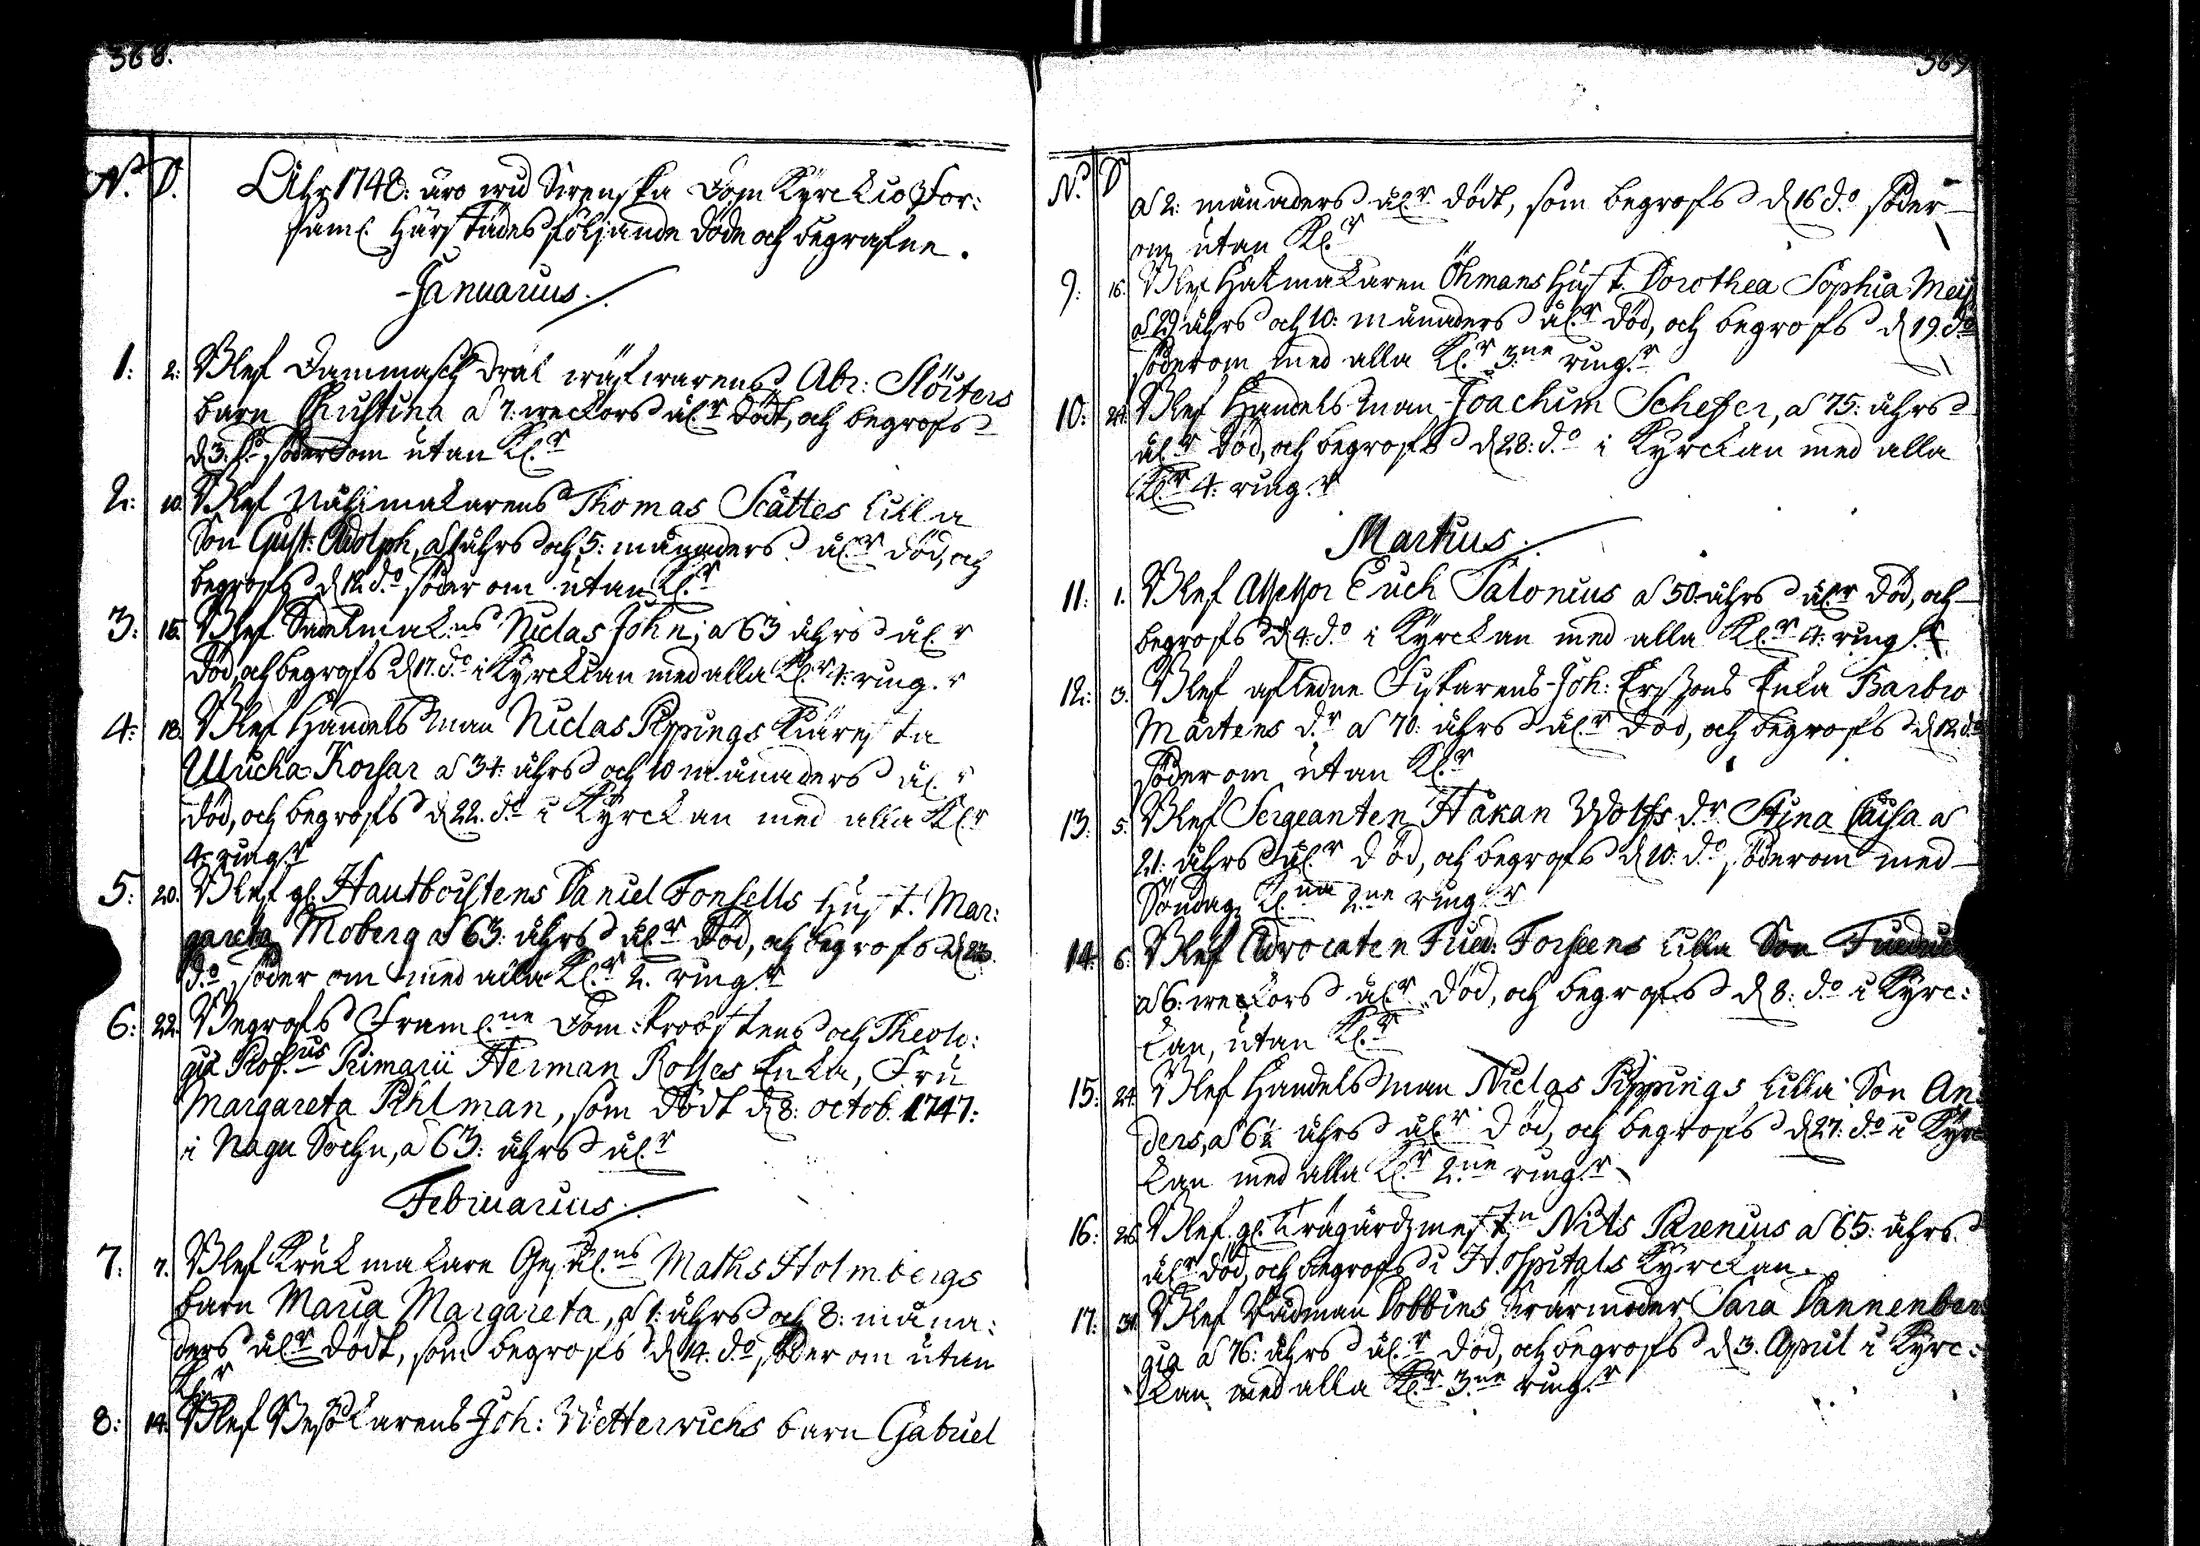 368.
369
N.o D.
Åhr 1748: äro wid Swenska Dom Kyrckio For:
saml. härstädes följande döde och begrafne.
Januarius.
1: 2: Blef Dammasch dräl wäfwarens Abr: Slöiters
barn Christina a 7: weckors ål.r dödt, och begrofs
d 3: d.o söder om utan Kl.r
2: 10. Blef Nålimakarens Thomas Scattes lilla
Son Gust: Adolph, a 1 åhrs och 5: månaders ål.r död, och
begrofs d 12. d.o söder om utan Kl.r
3: 15. Blef Sadelmak.ns Niclas John; a 63 åhrs ål.r
död, och begrofs d 17. d.o i Kyrckian med alla Kl.r 4: ring.r
4: 18. Blef Handels Man Niclas Pippings Kiäresta
Ulricha Korsar a 34: åhrs och 10 månaders ål.r
död, och begrofs d 22. d.o i Kyrckan med alla Kl.r
4: ring.r
5: 20. Blef gl. Hautboistens Daniel Fonsells Hust. Mar:
gareta Moberg a 63: åhrs ål.r död, och begrofs d 23.
d.o söder om med alla Kl.r 2. ring.r
6: 22. Begrofs Framl.ne Dom-Probstens och Theolo:
giæ Prof.ris Primarii Herman Rosses Enka, Fru
Margareta Pihlman, som dödt d 8: octob. 1747:
i Nagu Sochn, a 63: åhrs ål.r
Februarius.
7: 7. Blef Krukmakare Gesäl.ns Maths Holmbergs
barn Maria Margareta, a 1: åhrs och 8: måna:
ders ål.r dödt, som begrofs d 14. d.o söder om utan
Kl.r
8: 14. Blef Besökarens Joh: Wetterwichs barn Gabriel
N.o D
a 2: månaders ål.r dödt, som begrofs d 16 d.o söder
om utan Kl.r
9: 16. Blef Hatmakaren Öhmans Hust. Dorothea Sophia Meij
a 29 åhrs och 10: månaders ål.r död, och begrofs d 19. d.o
söder om med alla Kl.r 3.ne ring.r
10: 24. Blef Handels Man Joachim Scheffer, a 75: åhrs
ål.r död, och begrofs d 28: d.o i Kyrckan med alla
Kl.r 4: ring.r
Martius.
11: 1. Blef Assessor Erich Salonius a 50 åhrs ål.r död, och
begrofs d 4: d.o i Kyrckan med alla Kl.r 4: ring.r
12: 3. Blef afledne Fiskarens Joh: Erssons Enka Barbro
Mårtens d.r a 70: åhrs ål.r död, och begrofs d 12 d.o
söder om utan Kl.r
13: 5. Blef Sergeanten Håkan Wolffs d.r Stina Caisa a
21: åhrs ål.r död, och begrofs d 10: d.o söder om med
Söndags Kl.na 2.ne ring.r
14: 6. Blef Advocaten Fried: Forseens lilla Son Friedric
a 6: weckors ål.r död, och begrofs d 8: d.o i Kyrc:
kan, utan Kl.r
15: 24. Blef Handels Man Niclas Pippings lilla Son An:
ders, a 6½ åhrs ål.r död, och begrofs d 27: d.o i Kyrc
kan med alla Kl.r 2.ne ring.r
16: 28. Blef gl. Trägårdzmest.n Nils Parenius a 65: åhrs
ål.r död, och begrofs i Hospitals Kyrckan.
17: 31. Blef Rådman Dobbins Swärmoder Sara Dannenber
gia a 76: åhrs ål.r död, och begrofs d 3. April i Kyrc:
kan med alla Kl.r 3.ne ring.r